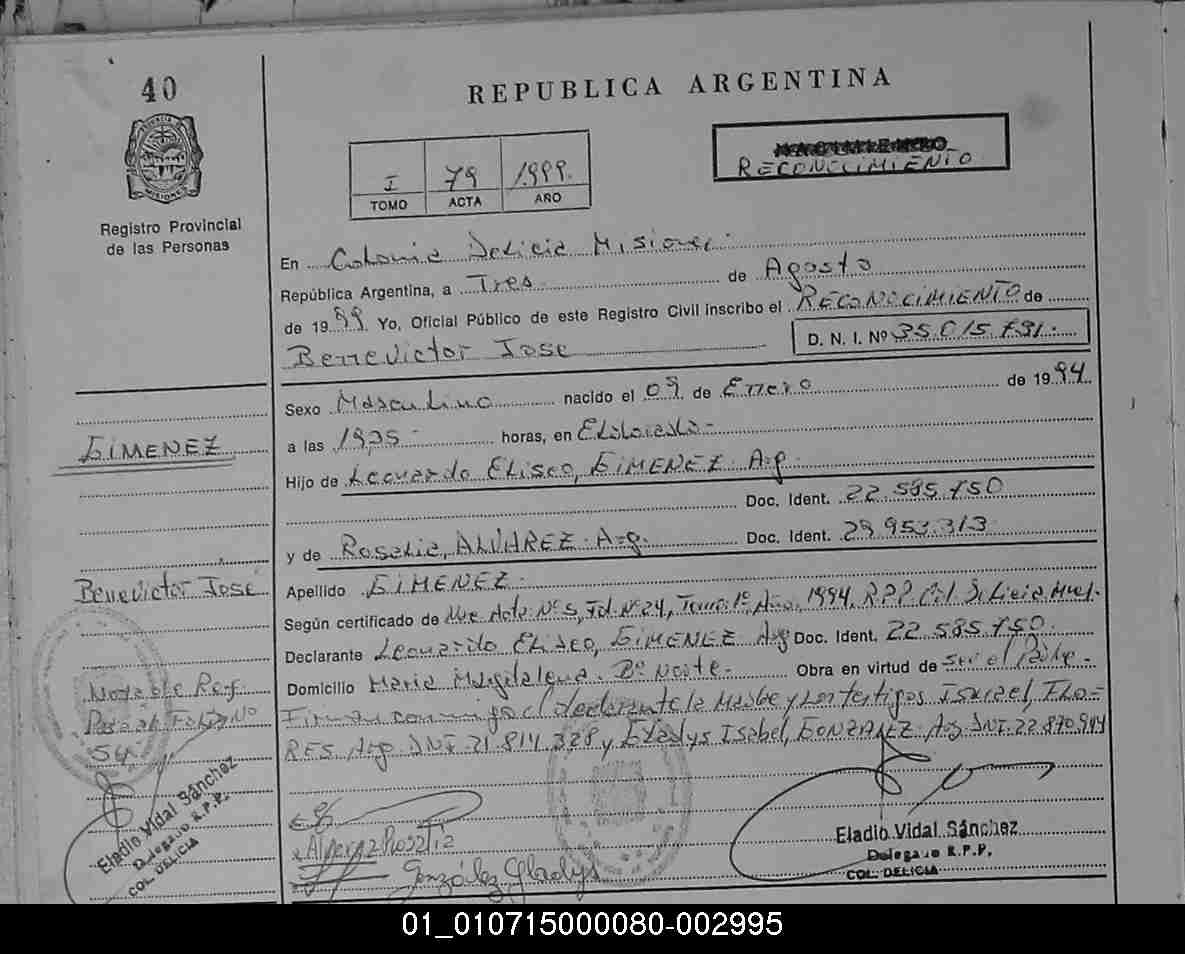 40
REPUBLICA ARGENTINA
RECONOCIMIENTO
I 79 1.999.
TOMO ACTA AÑO
Registro Provincial
de las Personas
En Colonia Delicia Misiones
República Argentina, a Tres de Agosto
de 1999 Yo, Oficial Público de este Registro Civil inscribo el RECONOCIMIENTO de
Bennevictor Jose D. N. I. Nº 35.015.791.
Sexo Masculino nacido el 09 de Enero de 1994
a las 19,05 horas, en Eldorado
GIMENEZ
Hijo de Leonardo Eliseo, GIMENEZ Arg.
Doc. Ident. 22.585.750
y de Rosalia, ALVAREZ Arg. Doc. Ident. 29.953.313
Benevictor José
Apellido GIMENEZ.
Según certificado de Acta Nº 5, Fol. Nº 24, Tomo 1º Año 1994, R.P.P. Col. Delicia
Declarante Leonardo Eliseo, GIMENEZ Arg Doc. Ident. 22.585.750.
Domicilio Maria Magdalena. Bº Norte. Obra en virtud de ser el Padre.
Firman conmigo el declarante la Madre y los testigos Israel, FLO=
RES, Arg. DNI. 21.814.328 y Gladys Isabel, GONZALEZ Arg. DNI. 22.870.944
Eladio Vidal Sánchez
Delegado R.P.P.
COL. DELICIA
Alvarez Rosalia
González Gladys
Eladio Vidal Sánchez
Delegado R.P.P.
COL. DELICIA
01_010715000080-002995